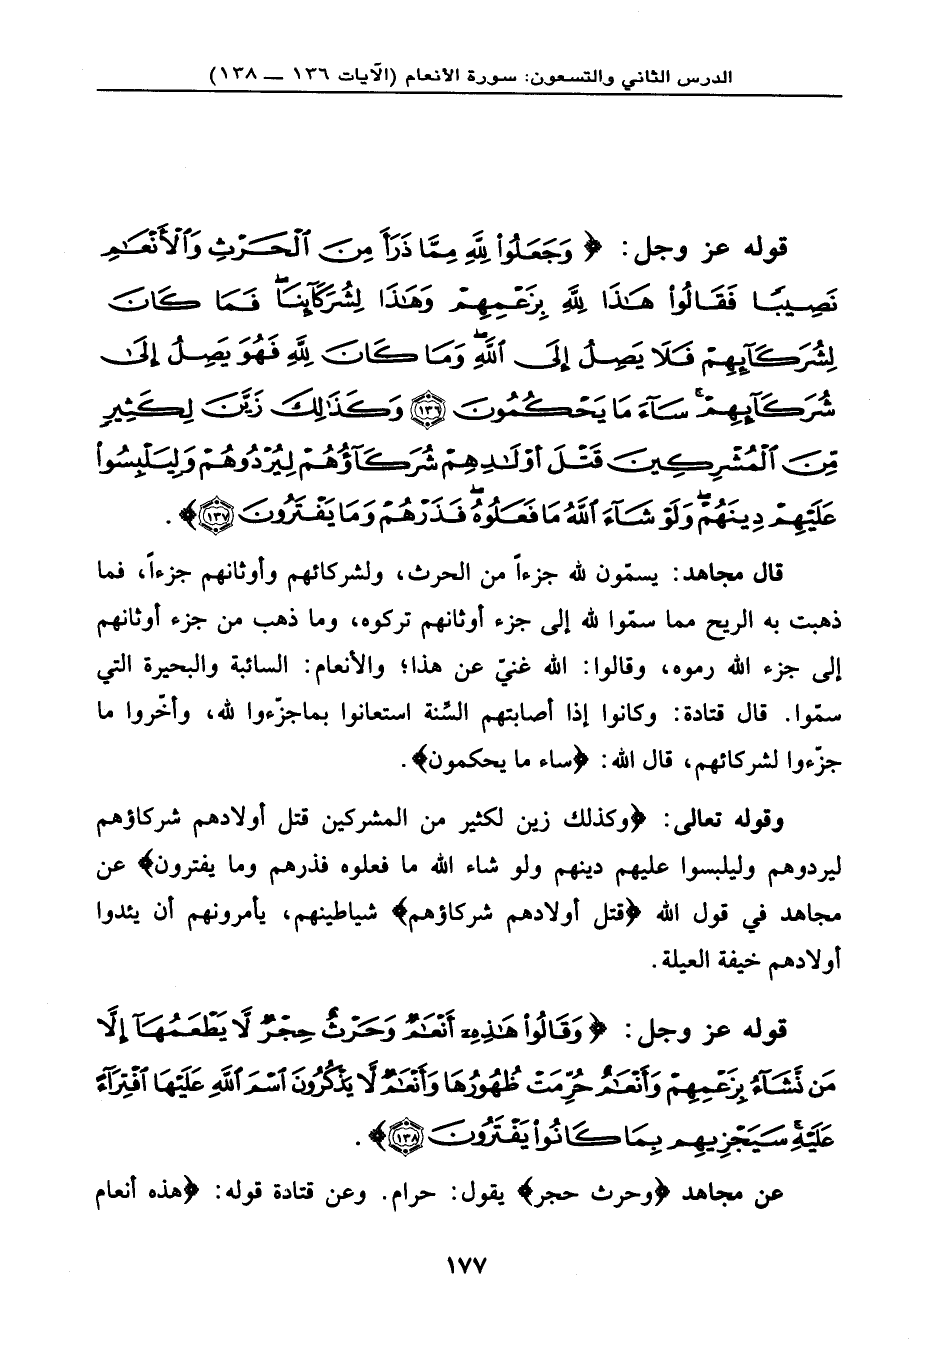 الدرس الثاني والتسعون: سورة الأنعام (الآيات ١٣٦ — ١٣٨)
قوله عز وجل: ﴿ وَجَعَلُواْ لِلَّهِ مِمَّا ذَرَأَ مِنَ ٱلْحَرْثِ وَٱلْأَنْعَٰمِ
نَصِيبًا فَقَالُواْ هَٰذَا لِلَّهِ بِزَعْمِهِمْ وَهَٰذَا لِشُرَكَآئِنَا ۖ فَمَا كَانَ
لِشُرَكَآئِهِمْ فَلَا يَصِلُ إِلَى ٱللَّهِ ۖ وَمَا كَانَ لِلَّهِ فَهُوَ يَصِلُ إِلَىٰ
شُرَكَآئِهِمْ ۗ سَآءَ مَا يَحْكُمُونَ ﴿١٣٦﴾ وَكَذَٰلِكَ زَيَّنَ لِكَثِيرٍ
مِّنَ ٱلْمُشْرِكِينَ قَتْلَ أَوْلَٰدِهِمْ شُرَكَآؤُهُمْ لِيُرْدُوهُمْ وَلِيَلْبِسُواْ
عَلَيْهِمْ دِينَهُمْ ۖ وَلَوْ شَآءَ ٱللَّهُ مَا فَعَلُوهُ ۖ فَذَرْهُمْ وَمَا يَفْتَرُونَ ﴿١٣٧﴾ ﴾ .
قال مجاهد: يسمّون لله جزءاً من الحرث، ولشركائهم وأوثانهم جزءاً، فما
ذهبت به الريح مما سمّوا لله إلى جزء أوثانهم تركوه، وما ذهب من جزء أوثانهم
إلى جزء الله رموه، وقالوا: الله غنيّ عن هذا؛ والأنعام: السائبة والبحيرة التي
سمّوا. قال قتادة: وكانوا إذا أصابتهم السَّنة استعانوا بماجزّءوا لله، وأخّروا ما
جزّءوا لشركائهم، قال الله: ﴿ساء ما يحكمون﴾ .
وقوله تعالى: ﴿وكذلك زين لكثير من المشركين قتل أولادهم شركاؤهم
ليردوهم وليلبسوا عليهم دينهم ولو شاء الله ما فعلوه فذرهم وما يفترون﴾ عن
مجاهد في قول الله ﴿قتل أولادهم شركاؤهم﴾ شياطينهم، يأمرونهم أن يئدوا
أولادهم خيفة العيلة .
قوله عز وجل: ﴿ وَقَالُواْ هَٰذِهِۦٓ أَنْعَٰمٌ وَحَرْثٌ حِجْرٌ لَّا يَطْعَمُهَآ إِلَّا
مَن نَّشَآءُ بِزَعْمِهِمْ وَأَنْعَٰمٌ حُرِّمَتْ ظُهُورُهَا وَأَنْعَٰمٌ لَّا يَذْكُرُونَ ٱسْمَ ٱللَّهِ عَلَيْهَا ٱفْتِرَآءً
عَلَيْهِ ۚ سَيَجْزِيهِم بِمَا كَانُواْ يَفْتَرُونَ ﴿١٣٨﴾ ﴾ .
عن مجاهد ﴿وحرث حجر﴾ يقول: حرام. وعن قتادة قوله: ﴿هذه أنعام
١٧٧